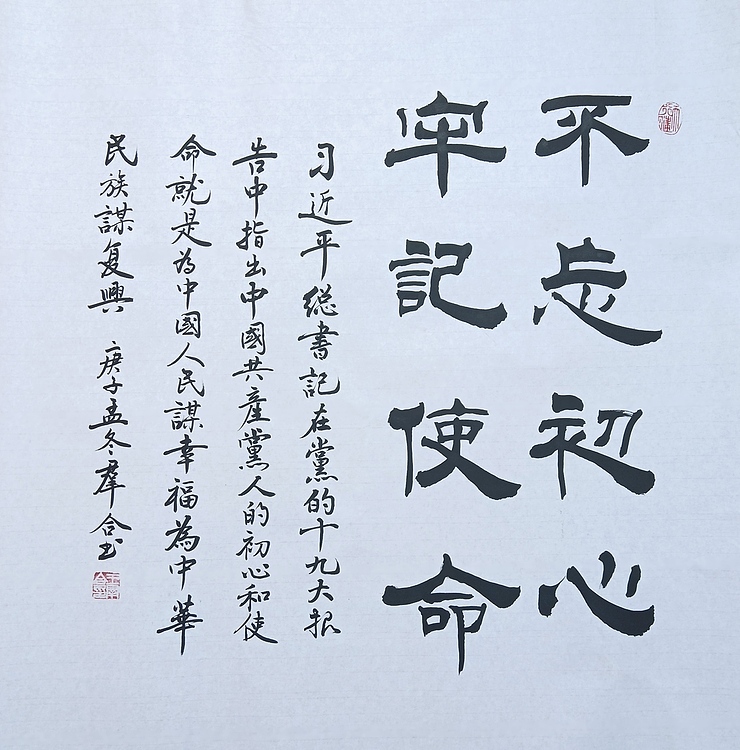 不忘初心
牢記使命
习近平総書記在黨的十九大报
告中指出中國共産黨人的初心和使
命就是为中國人民謀幸福為中華
民族謀复興
庚子孟冬羣合书